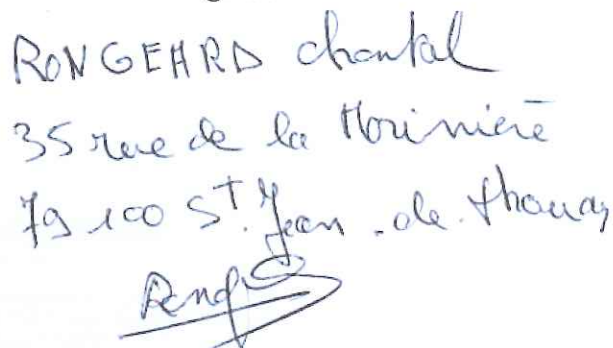 RONGEARD Chantal
35 rue de la Morinière
79100 St. Jean. de. Thouars